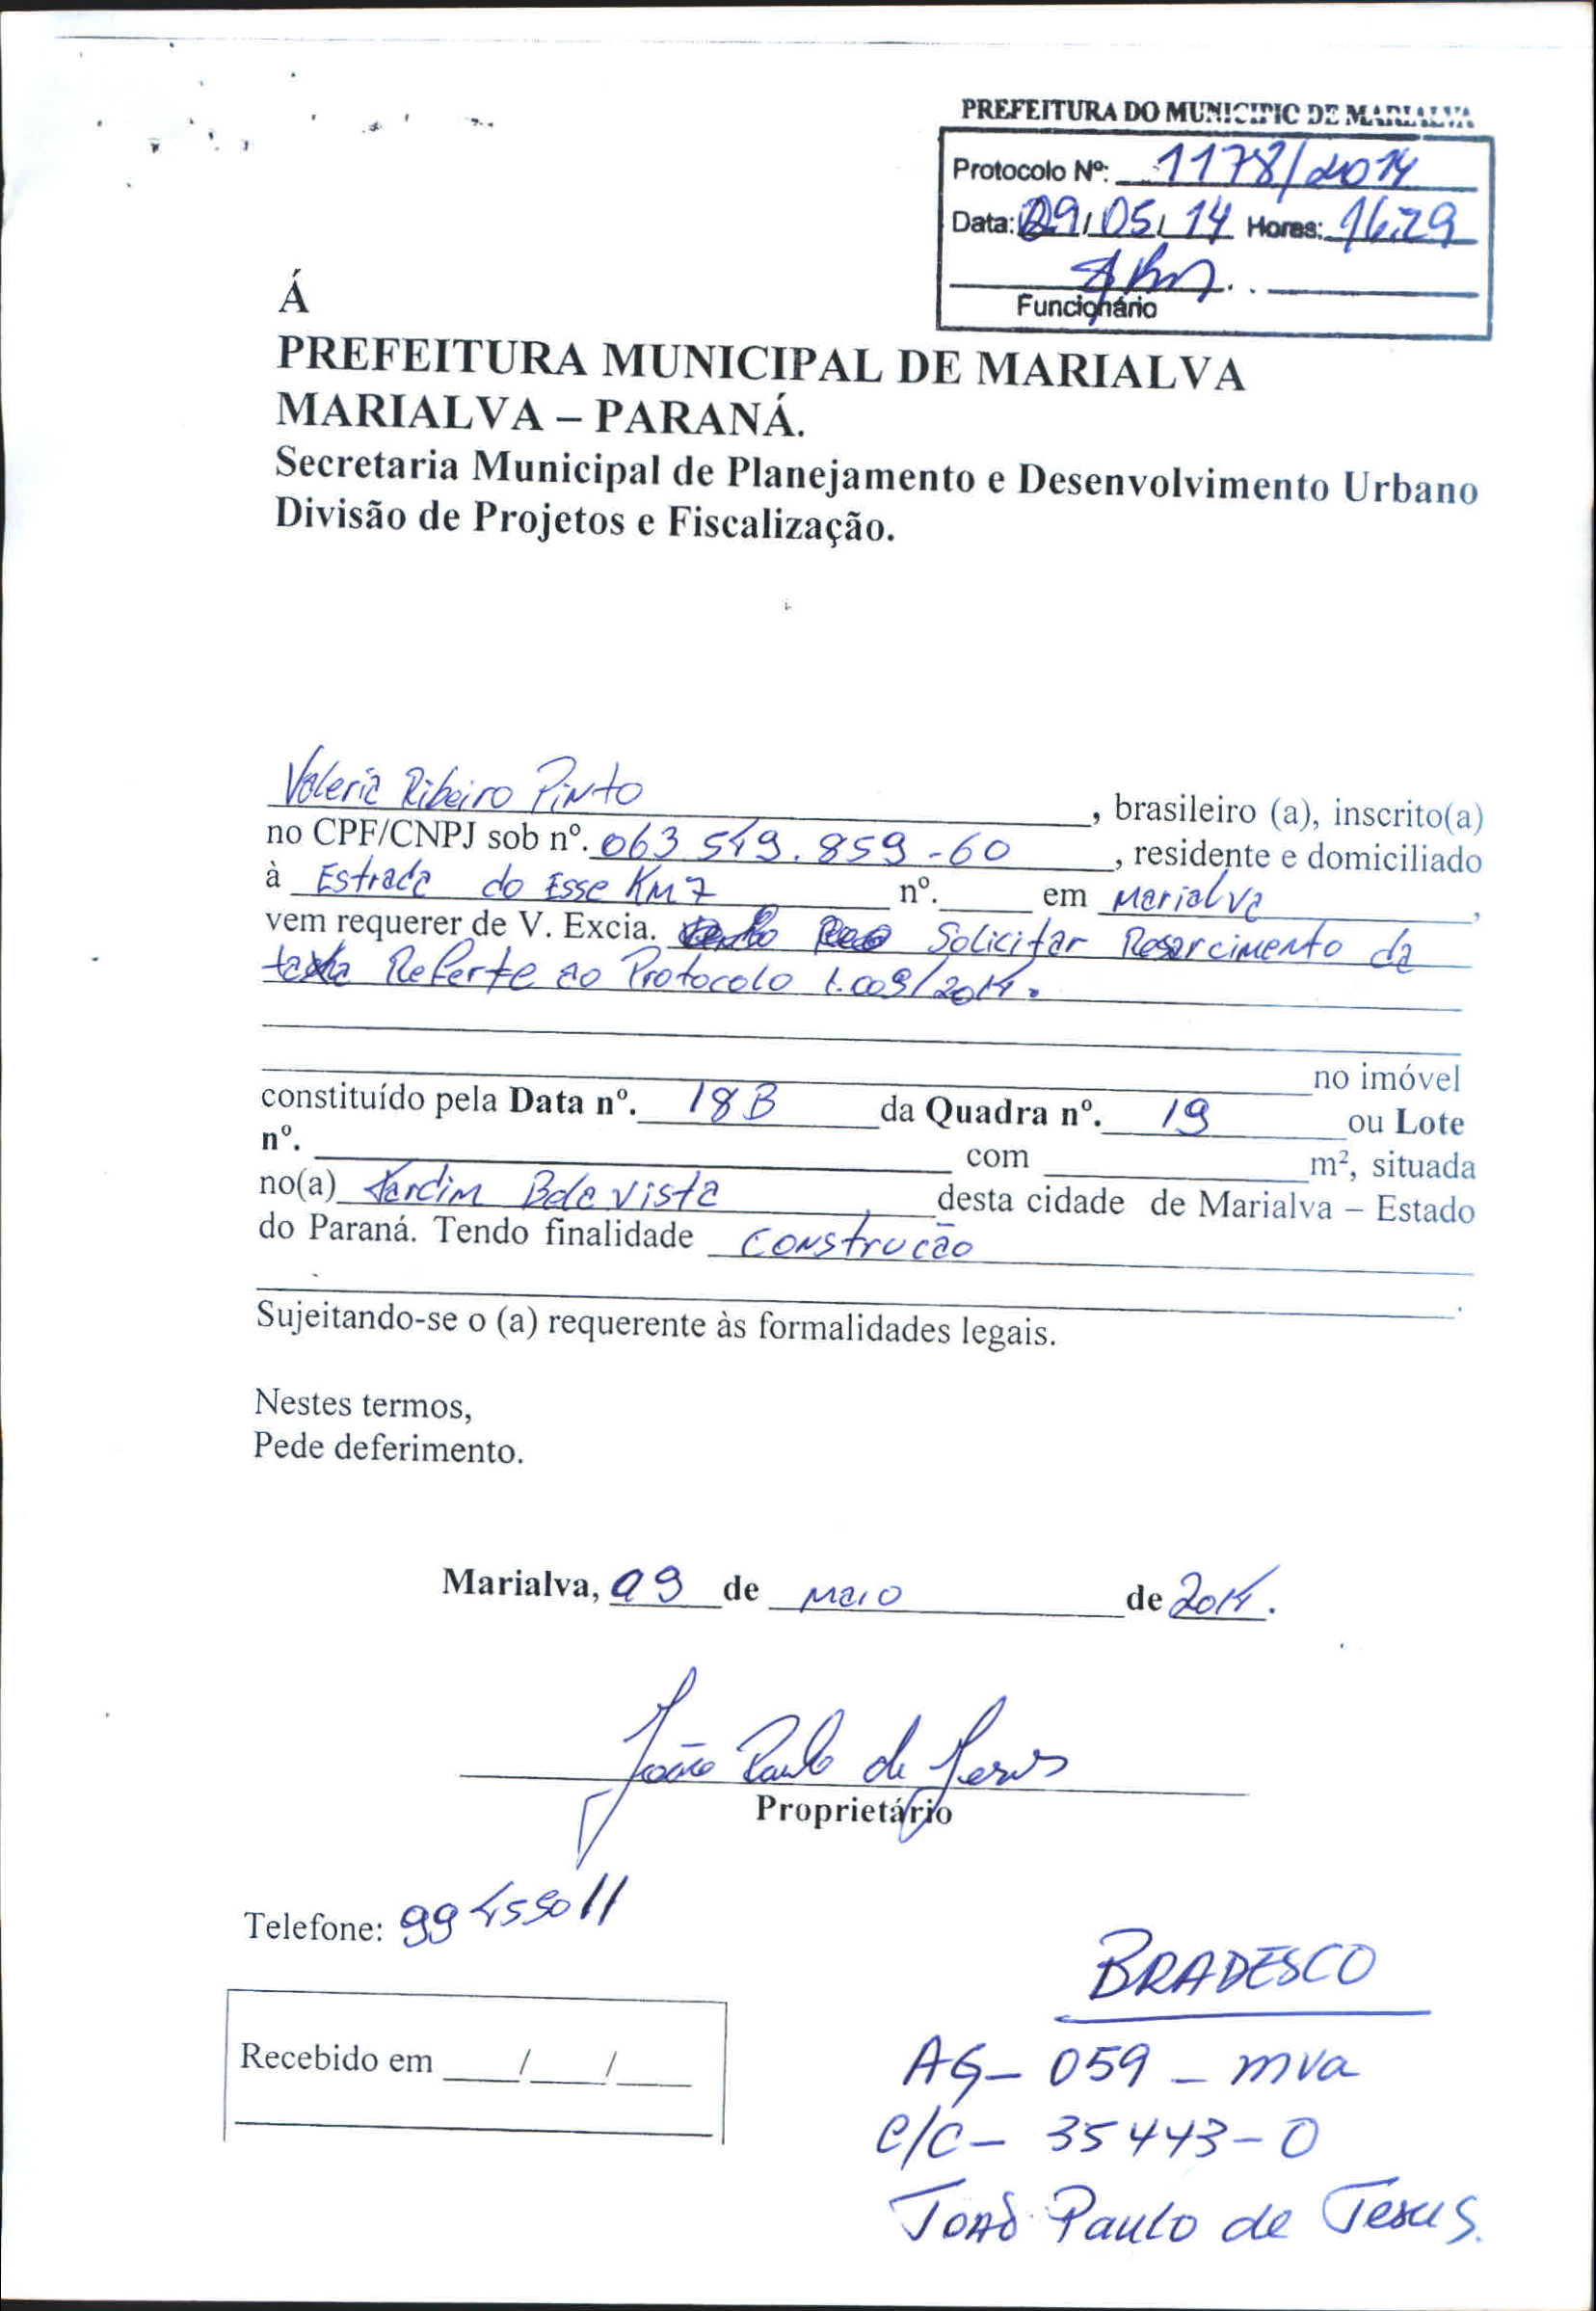 PREFEITURA DO MUNICIPIO DE MARIALVA
Protocolo Nº: 1178/2014
Data: 09/05/14 Horas: 16:29
Funcionário
Á
PREFEITURA MUNICIPAL DE MARIALVA
MARIALVA – PARANÁ.
Secretaria Municipal de Planejamento e Desenvolvimento Urbano
Divisão de Projetos e Fiscalização.
Valeria Ribeiro Pinto, brasileiro (a), inscrito(a)
no CPF/CNPJ sob nº. 063 549.859-60, residente e domiciliado
à Estrada do Esse Km 7 nº. em Marialva,
vem requerer de V. Excia. Solicitar Resarcimento da
taxa Referte ao Protocolo 1.009/2014.
no imóvel
constituído pela Data nº. 18B da Quadra nº. 19 ou Lote
nº. com m², situada
no(a) Jardim Bela vista desta cidade de Marialva – Estado
do Paraná. Tendo finalidade Construcão
Sujeitando-se o (a) requerente às formalidades legais.
Nestes termos,
Pede deferimento.
Marialva, 09 de maio de 2014.
João Paulo de Jesus
Proprietário
Telefone: 99 455011
BRADESCO
Recebido em / /
AG- 059 - mva
C/C- 35443-0
João Paulo de Jesus.